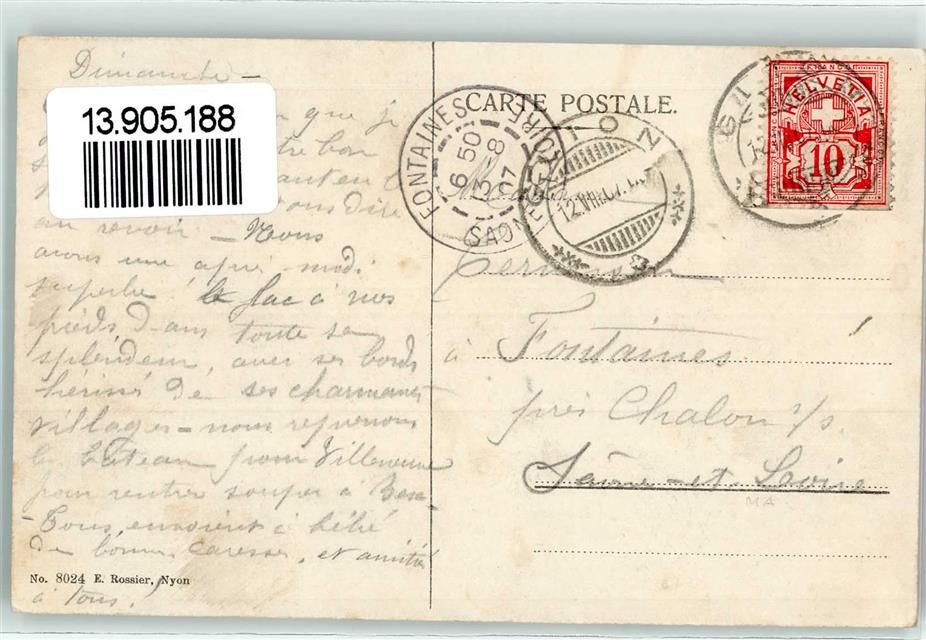 Dimanche –
13.905.188
que je
bon
dire
au revoir – Nous
avons une après midi
superbe! le lac à nos
pieds dans toute sa
splendeur, avec ses bords
hérissé de ses charmants
villages – nous reprenons
le bateau pour Villeneuve
pour rentrer souper à Bex –
Tous envoient à bébé
de bonnes caresses, et amitiés
No. 8024 E. Rossier, Nyon
à tous!
CARTE POSTALE.
FONTAINES
6 50
3 -8
07
SAONE ET LOIRE
12.VIII.07
HELVETIA
10
FRANCO
à Fontaines
près Chalon s/s.
Saône-et-Loire
MA